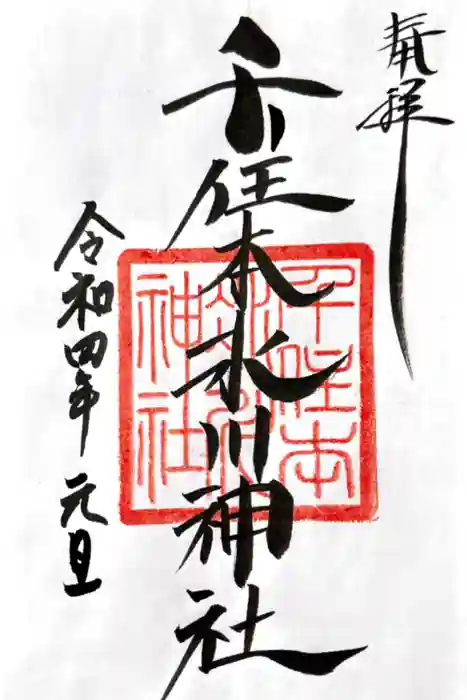 奉拝
千住本氷川神社
千住本
神社
令和四年 元旦